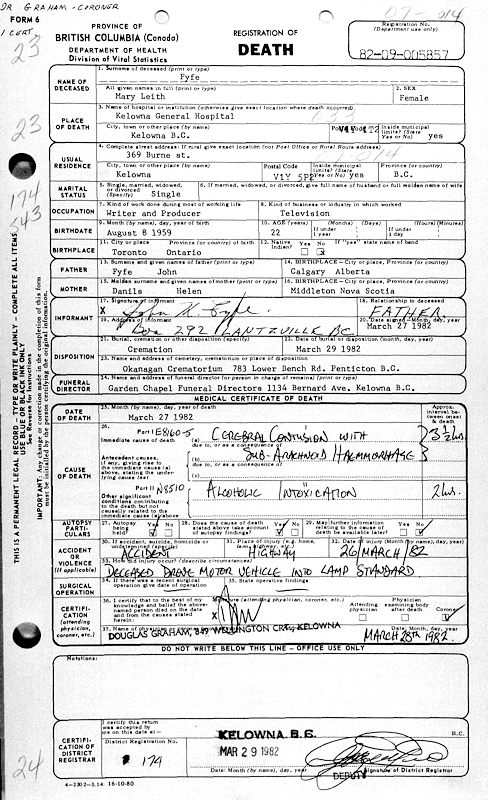 DR GRAHAM - CORONER
FORM 6
1 CERT.
PROVINCE OF
BRITISH COLUMBIA (Canada)
DEPARTMENT OF HEALTH
Division of Vital Statistics
REGISTRATION OF
DEATH
Registration No.
(Department use only)
82-09-005857
23
23
24
THIS IS A PERMANENT LEGAL RECORD - TYPE OR WRITE PLAINLY - COMPLETE ALL ITEMS
USE BLUE OR BLACK INK ONLY
See Reverse for Instructions
IMPORTANT: Any change or correction made in the completion of this form
must be initialled by the person certifying the original information.
NAME OF DECEASED
1. Surname of deceased (print or type)
Fyfe
All given names in full (print or type)
Mary Leith
2. SEX
Female
PLACE OF DEATH
3. Name of hospital or institution (otherwise give exact location where death occurred)
Kelowna General Hospital
City, town or other place (by name)
Kelowna B.C.
Inside municipal limits? (State Yes or No)
yes
USUAL RESIDENCE
4. Complete street address: If rural give exact location (not Post Office or Rural Route address)
369 Burne st.
City, town or other place (by name)
Kelowna
Postal Code
V1Y
Inside municipal limits? (State Yes or No)
yes
Province (or country)
B.C.
MARITAL STATUS
5. Single, married, widowed, or divorced (Specify)
Single
6. If married, widowed, or divorced, give full name of husband or full maiden name of wife
OCCUPATION
7. Kind of work done during most of working life
Writer and Producer
8. Kind of business or industry in which worked
Television
BIRTHDATE
9. Month (by name), day, year of birth
August 8 1959
10. AGE (years)
22
(Months) (Days)
If under 1 year
(Hours) (Minutes)
If under 1 day
BIRTHPLACE
11. City or place
Toronto
Province (or country) of birth
Ontario
12. Native Indian?
Yes No
If "yes" state name of band
FATHER
13. Surname and given names of father (print or type)
Fyfe John
14. BIRTHPLACE - City or place, Province (or country)
Calgary Alberta
MOTHER
15. Maiden surname and given names of mother (print or type)
Danils Helen
16. BIRTHPLACE - City or place, Province (or country)
Middleton Nova Scotia
INFORMANT
17. Signature of informant
X John W. Fyfe
18. Relationship to deceased
FATHER
19. Address of informant
Box 292 LANTZVILLE BC
20. Date signed - Month, day, year
March 27 1982
DISPOSITION
21. Burial, cremation or other disposition (specify)
Cremation
22. Date of burial or disposition (month, day, year)
March 29 1982
23. Name and address of cemetery, crematorium or place of disposition
Okanagan Crematorium 783 Lower Bench Rd. Penticton B.C.
FUNERAL DIRECTOR
24. Name and address of funeral director (or person in charge of remains) (print or type)
Garden Chapel Funeral Directors 1134 Bernard Ave. Kelowna B.C.
MEDICAL CERTIFICATE OF DEATH
DATE OF DEATH
25. Month (by name), day, year of death
March 27 1982
Approx. interval between onset & death
CAUSE OF DEATH
26.
Part I E8160-5
Immediate cause of death
(a) CEREBRAL CONTUSION WITH
due to, or as a consequence of
3 1/2 hrs.
Antecedent causes, if any, giving rise to the immediate cause (a) above, stating the underlying cause last
(b) SUB-ARACHNOID HAEMMORHAGE
due to, or as a consequence of
(c)
Part II N8510
Other significant conditions contributing to the death but not causally related to the immediate cause (a) above
ALCOHOLIC INTOXICATION
2 hrs.
AUTOPSY PARTICULARS
27. Autopsy being held?
Yes No
28. Does the cause of death stated above take account of autopsy findings?
Yes No
29. May further information relating to the cause of death be available later?
Yes No
ACCIDENT OR VIOLENCE (if applicable)
30. If accident, suicide, homicide or undetermined (specify)
ACCIDENT
31. Place of injury (e.g. home, farm, highway, etc.)
HIGHWAY
32. Date of injury (Month (by name), day, year)
26 MARCH /82
33. How did injury occur? (describe circumstances)
DECEASED DROVE MOTOR VEHICLE INTO LAMP STANDARD
SURGICAL OPERATION
34. If there was a recent surgical operation give date of operation
35. State operative findings
CERTIFICATION
(attending physician, coroner, etc.)
36. I certify that to the best of my knowledge and belief the above-named person died on the date and from the causes stated herein:
Signature (attending physician, coroner, etc.)
X
Attending physician
Physician examining body after death
Coroner
37. Name of physician
DOUGLAS GRAHAM, 849 WELLINGTON CRES, KELOWNA
Date: Month, day, year
MARCH 28th 1982
DO NOT WRITE BELOW THIS LINE - OFFICE USE ONLY
Notations:
CERTIFICATION OF DISTRICT REGISTRAR
I certify this return was accepted by me on this date at -
KELOWNA, B.C.
B.C.
District Registration No.
174
MAR 29 1982
Date: Month (by name), day, year
DEPUTY
Signature of District Registrar
4-2302-3.14. 16-10-80